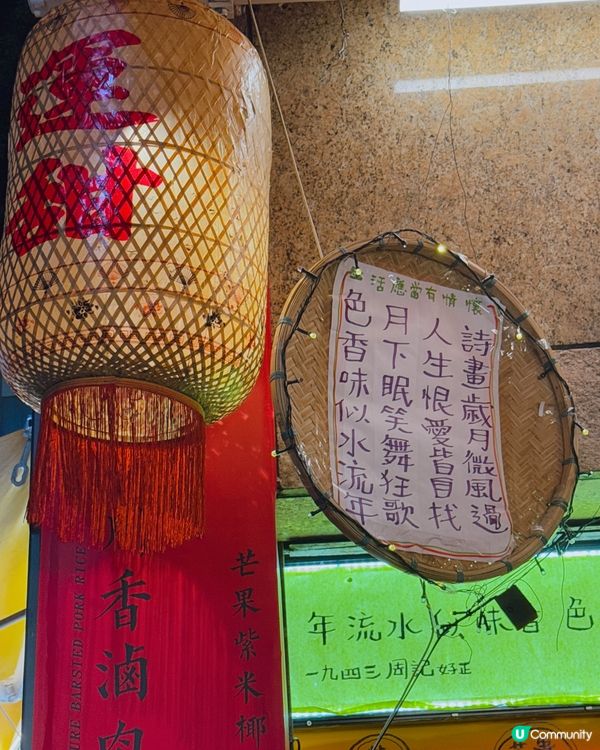 活應當有情懷
詩畫歲月微風過
人生恨愛皆自找
月下眠笑舞狂歌
色香味似水流年
芒果紫米椰
香滷肉
URE BARSTED PORK RICE
色香味似水流年
一九四三周記好正
U Community